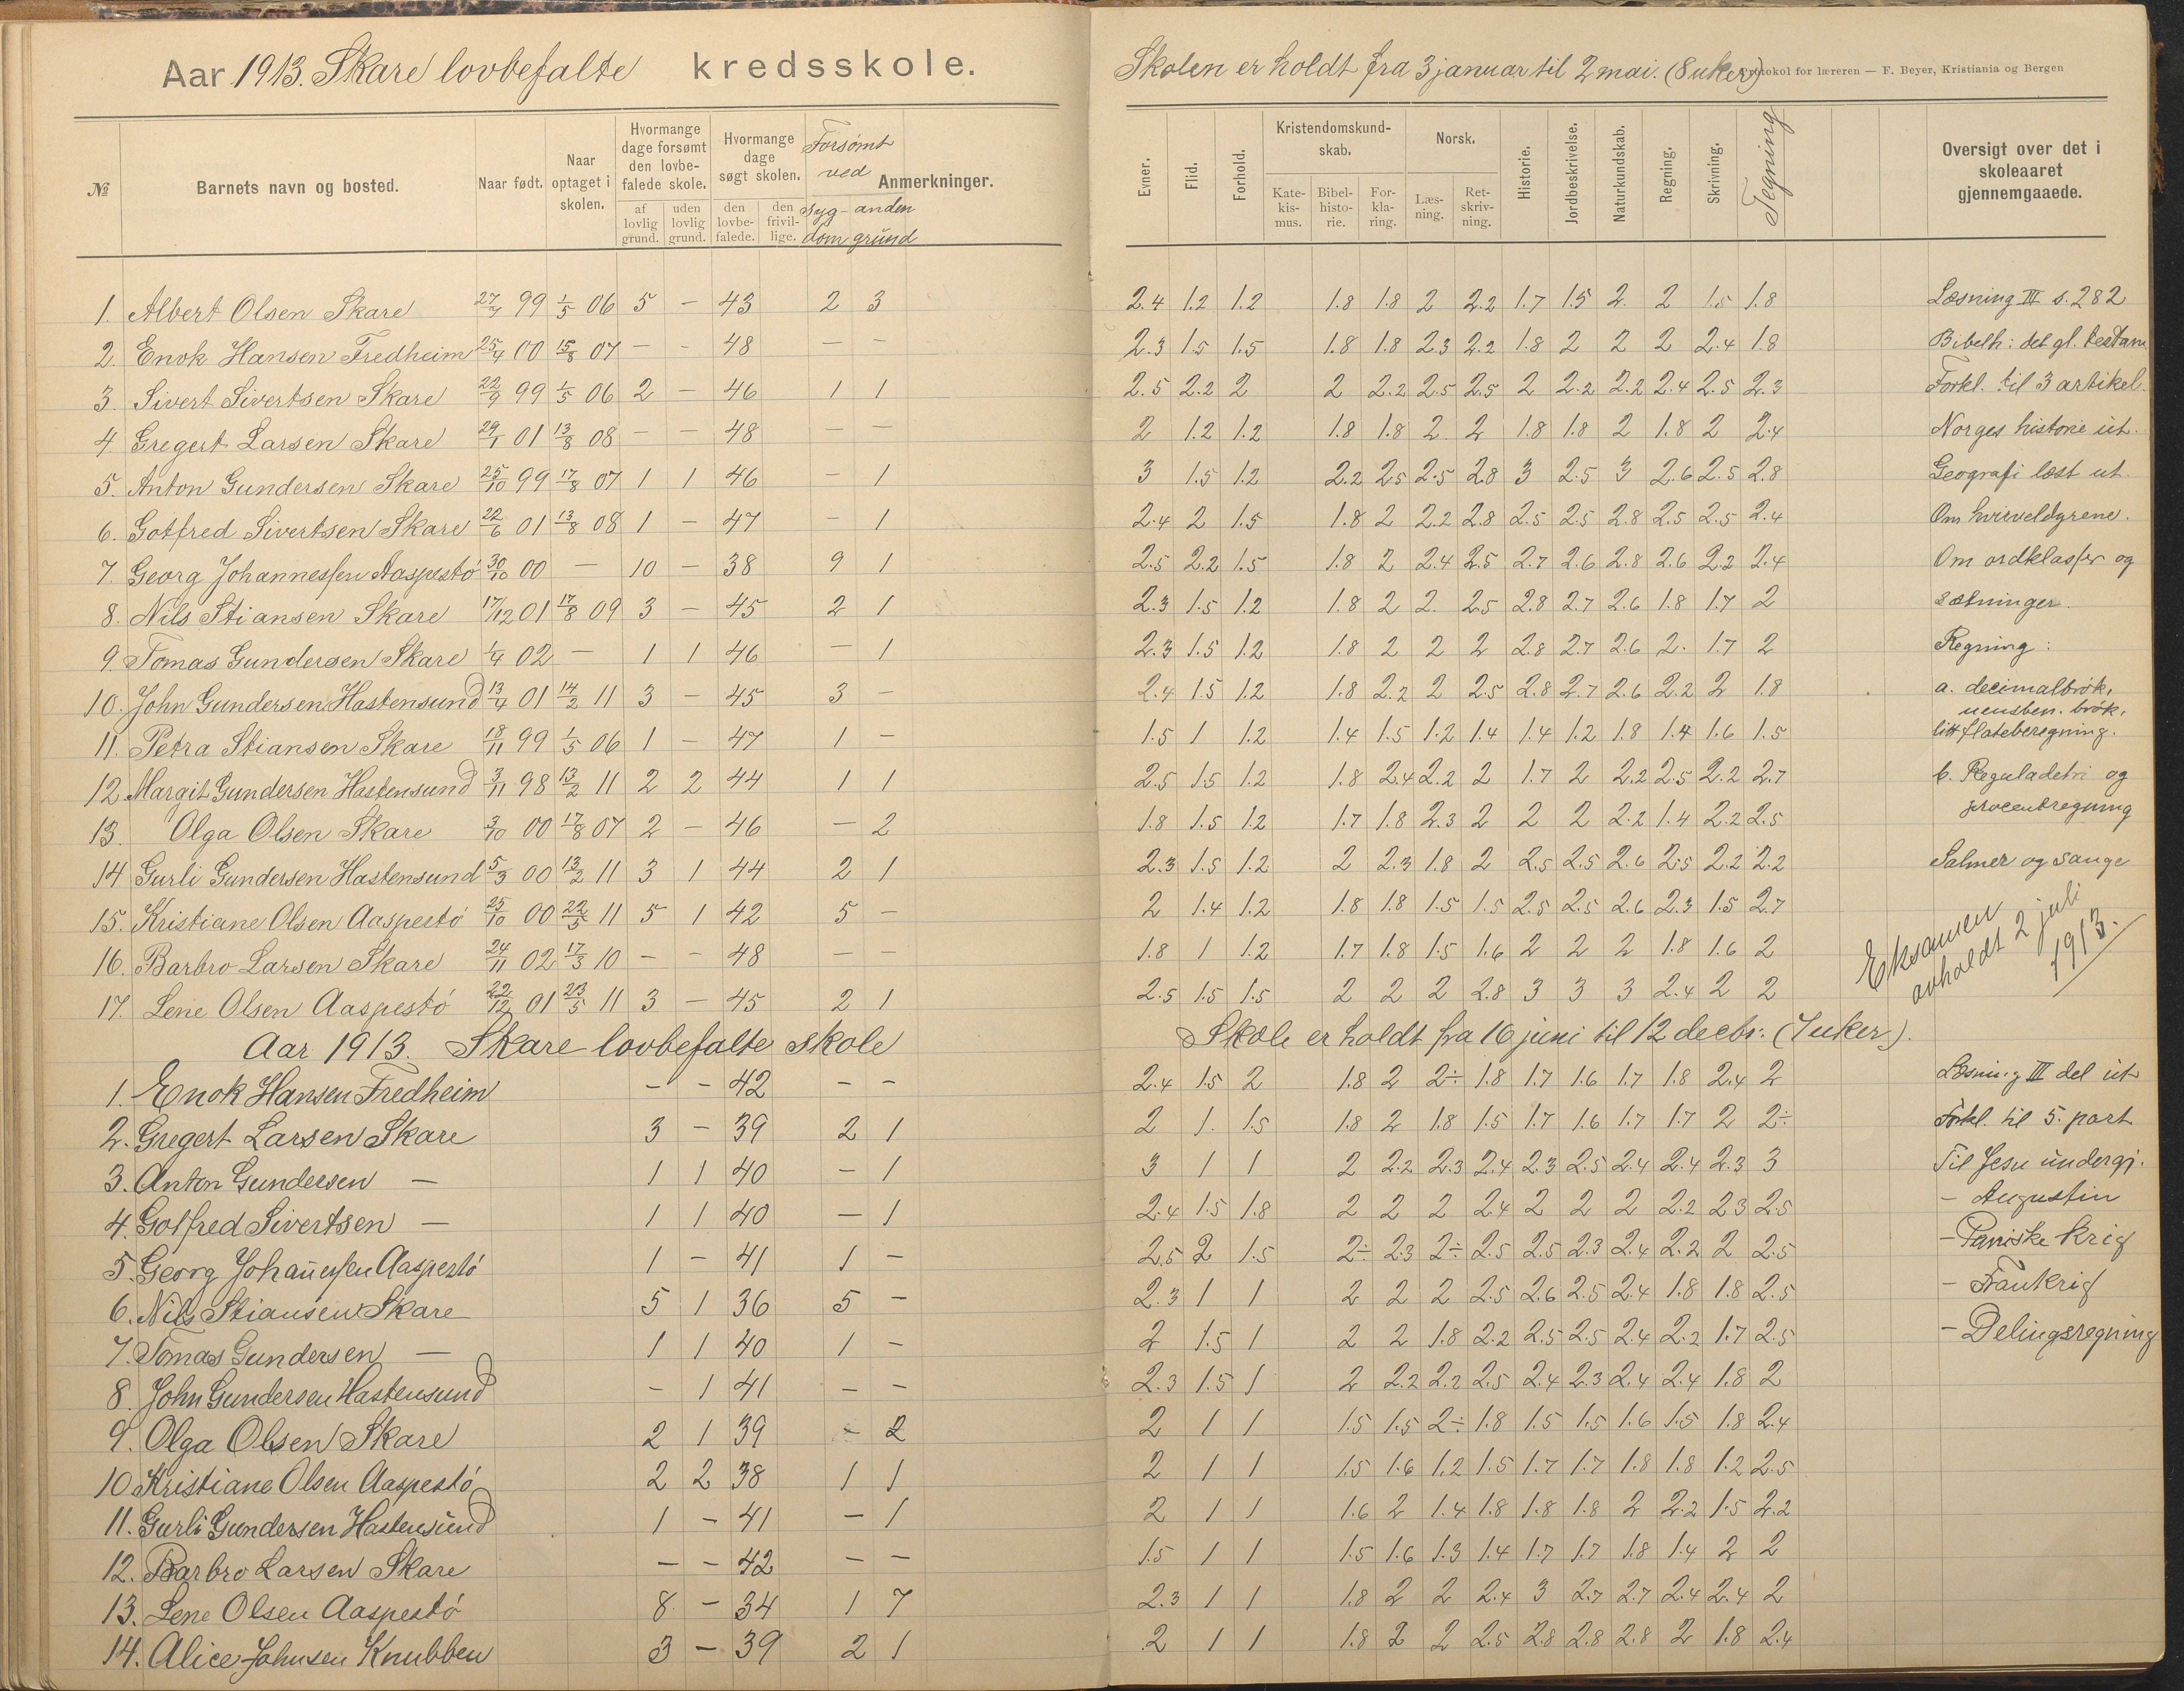 Aar 1913. Skare lovbefalte kredsskole.
№ Barnets navn og bosted. Naar født. Naar optaget i skolen. Hvormange dage forsømt den lovbefalede skole. Hvormange dage søgt skolen. Forsømt ved Anmerkninger.
af lovlig grund. uden lovlig grund. den lovbefalede. den frivillige. sygdom anden grund
1. Albert Olsen Skare 27/7 99 1/5 06 5 - 43 2 3
2. Enok Hansen Fredheim 25/4 00 15/8 07 - - 48 - -
3. Sivert Sivertsen Skare 22/9 99 1/5 06 2 - 46 1 1
4. Gregert Larsen Skare 29/1 01 13/8 08 - - 48 - -
5. Anton Gundersen Skare 25/10 99 17/8 07 1 1 46 - 1
6. Gotfred Sivertsen Skare 22/6 01 13/8 08 1 - 47 - 1
7. Georg Johannessen Aaspestö 30/10 00 - 10 - 38 9 1
8. Nils Stiansen Skare 17/12 01 17/8 09 3 - 45 2 1
9. Tomas Gundersen Skare 1/4 02 - 1 1 46 - 1
10. John Gundersen Hastensund 13/4 01 14/2 11 3 - 45 3 -
11. Petra Stiansen Skare 18/11 99 1/5 06 1 - 47 1 -
12. Margit Gundersen Hastensund 3/11 98 13/2 11 2 2 44 1 1
13. Olga Olsen Skare 3/10 00 17/8 07 2 - 46 - 2
14 Gurli Gundersen Hastensund 5/3 00 13/2 11 3 1 44 2 1
15. Kristiane Olsen Aaspestö 25/10 00 22/5 11 5 1 42 5 -
16. Barbro Larsen Skare 24/11 02 17/3 10 - - 48 - -
17. Lene Olsen Aaspestö 22/12 01 23/5 11 3 - 45 2 1
Aar 1913. Skare lovbefalte skole
1. Enok Hansen Fredheim - - 42 - -
2. Gregert Larsen Skare 3 - 39 2 1
3. Anton Gundersen - 1 1 40 - 1
4. Gotfred Sivertsen - 1 1 40 - 1
5. Georg Johanessen Aaspestö 1 - 41 1 -
6. Nils Stiansen Skare 5 1 36 5 -
7. Tomas Gundersen - 1 1 40 1 -
8. John Gundersen Hastensund - 1 41 - -
9. Olga Olsen Skare 2 1 39 - 2
10 Kristiane Olsen Aaspestö 2 2 38 1 1
11. Gurli Gundersen Hastensund 1 - 41 - 1
12. Barbro Larsen Skare - - 42 - -
13. Lene Olsen Aaspestö 8 - 34 1 7
14. Alice Johnsen Knubben 3 - 39 2 1
Skolen er holdt fra 3 januar til 2 mai. (8 uker)
Protokol for læreren — F. Beyer, Kristiania og Bergen
Evner. Flid. Forhold. Kristendomskundskab. Norsk. Historie. Jordbeskrivelse. Naturkundskab. Regning. Skrivning. Tegning Oversigt over det i skoleaaret gjennemgaaede.
Katekismus. Bibelhistorie. Forklaring. Læsning. Retskrivning.
2.4 1.2 1.2 1.8 1.8 2 2.2 1.7 1.5 2. 2 1.5 1.8 Læsning III s. 282
2.3 1.5 1.5 1.8 1.8 2.3 2.2 1.8 2 2 2 2.4 1.8 Bibelh: det gl. testam
2.5 2.2 2 2 2.2 2.5 2.5 2 2.2 2.2 2.4 2.5 2.3 Forkl. til 3 artikel.
2 1.2 1.2 1.8 1.8 2 2 1.8 1.8 2 1.8 2 2.4 Norges historie ut.
3 1.5 1.2 2.2 2.5 2.5 2.8 3 2.5 3 2.6 2.5 2.8 Geografi læst ut.
2.4 2 1.5 1.8 2 2.2 2.8 2.5 2.5 2.8 2.5 2.5 2.4 Om hvirveldyrene.
2.5 2.2 1.5 1.8 2 2.4 2.5 2.7 2.6 2.8 2.6 2.2 2.4 Om ordklasser og
2.3 1.5 1.2 1.8 2 2. 2.5 2.8 2.7 2.6 1.8 1.7 2 sætninger.
2.3 1.5 1.2 1.8 2 2 2 2.8 2.7 2.6 2. 1.7 2 Regning:
2.4 1.5 1.2 1.8 2.2 2 2.5 2.8 2.7 2.6 2.2 2 1.8 a. decimalbrök,
uensben. brök,
1.5 1 1.2 1.4 1.5 1.2 1.4 1.4 1.2 1.8 1.4 1.6 1.5 litt flateberegning.
2.5 1.5 1.2 1.8 2.4 2.2 2 1.7 2 2.2 2.5 2.2 2.7 b. Reguladetri og
1.8 1.5 1.2 1.7 1.8 2.3 2 2 2 2.2 1.4 2.2 2.5 procentregning
2.3 1.5 1.2 2 2.3 1.8 2 2.5 2.5 2.6 2.5 2.2 2.2 Salmer og sange
2 1.4 1.2 1.8 1.8 1.5 1.5 2.5 2.5 2.6 2.3 1.5 2.7
1.8 1 1.2 1.7 1.8 1.5 1.6 2 2 2 1.8 1.6 2
2.5 1.5 1.5 2 2 2 2.8 3 3 3 2.4 2 2
Eksamen
avholdt 2 juli
1913.
Skole er holdt fra 16 juni til 12 decbr: (7 uker).
2.4 1.5 2 1.8 2 2÷ 1.8 1.7 1.6 1.7 1.8 2.4 2 Læsning III del ut
2 1. 1.5 1.8 2 1.8 1.5 1.7 1.6 1.7 1.7 2 2÷ Forkl. til 5. part
3 1 1 2 2.2 2.3 2.4 2.3 2.5 2.4 2.4 2.3 3 Til Jesu undergj.
2.4 1.5 1.8 2 2 2 2.4 2 2 2 2.2 2.3 2.5 - Augustin
2.5 2 1.5 2÷ 2.3 2÷ 2.5 2.5 2.3 2.4 2.2 2 2.5 - Puniske krig
2.3 1 1 2 2 2 2.5 2.6 2.5 2.4 1.8 1.8 2.5 - Frankrig
2 1.5 1 2 2 1.8 2.2 2.5 2.5 2.4 2.2 1.7 2.5 - Delingsregning
2.3 1.5 1 2 2.2 2.2 2.5 2.4 2.3 2.4 2.4 1.8 2
2 1 1 1.5 1.5 2÷ 1.8 1.5 1.5 1.6 1.5 1.8 2.4
2 1 1 1.5 1.6 1.2 1.5 1.7 1.7 1.8 1.8 1.2 2.5
2 1 1 1.6 2 1.4 1.8 1.8 1.8 2 2.2 1.5 2.2
1.5 1 1 1.5 1.6 1.3 1.4 1.7 1.7 1.8 1.4 2 2
2.3 1 1 1.8 2 2 2.4 3 2.7 2.7 2.4 2.4 2
2 1 1 1.8 2 2 2.5 2.8 2.8 2.8 2 1.8 2.4